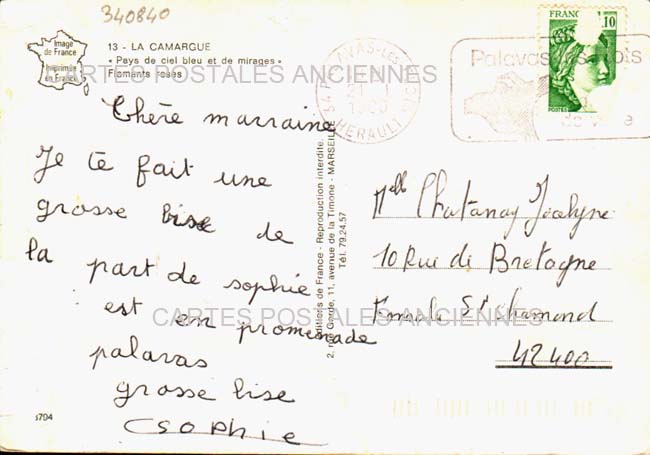 340840
Image
de France
Imprimée
en France
13 - LA CAMARGUE
« Pays de ciel bleu et de mirages »
Flamants roses
CARTES POSTALES ANCIENNES
FRANCE
1,10
POSTES
PALAVAS-LES-
1980
HERAULT
Palavas les flots
de
Chère marraine
Je te fait une
grosse bise de
la part de sophie
est en promenade
palavas
grosse bise
SOPHIE
Editions de France - Reproduction interdite.
2, rue Garde, 11, avenue de la Timone - MARSEILLE
Tél. 79.24.57
Melle Chatanay Jocelyne
10 Rue de Bretagne
St Chamond
42400
CARTES POSTALES ANCIENNES